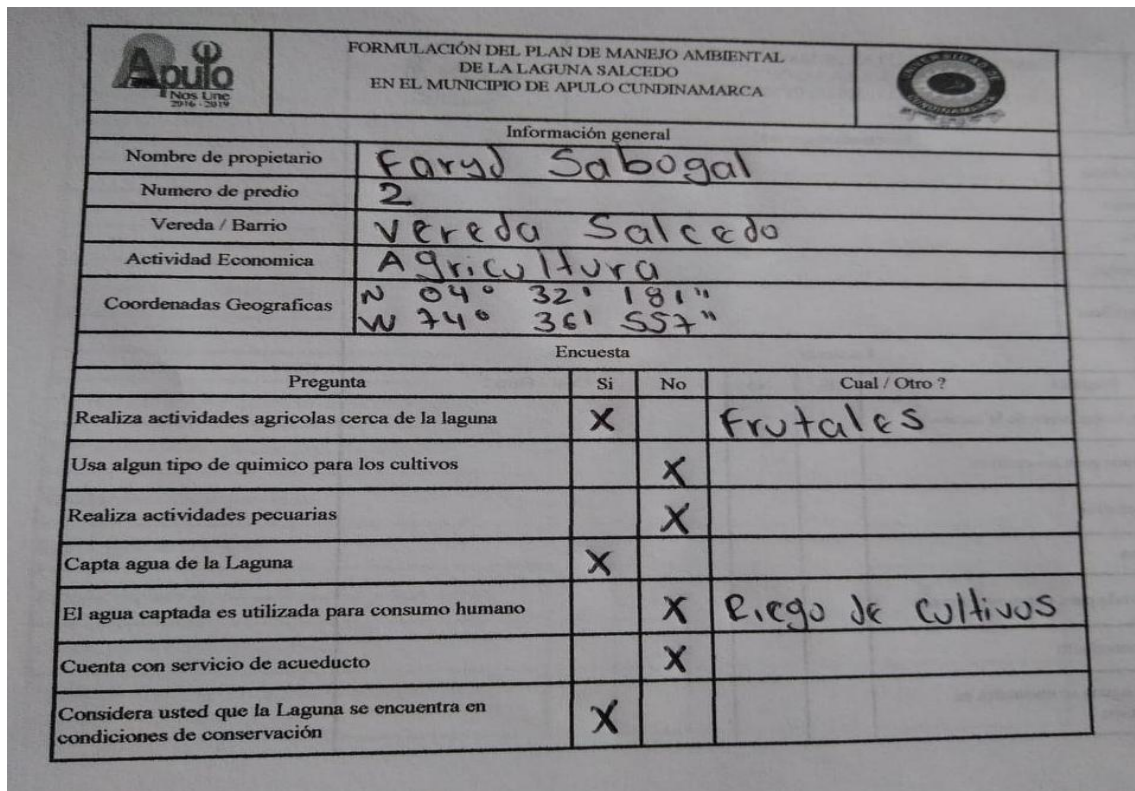 Apulo
Nos Une
2016 - 2019
FORMULACIÓN DEL PLAN DE MANEJO AMBIENTAL
DE LA LAGUNA SALCEDO
EN EL MUNICIPIO DE APULO CUNDINAMARCA
UNIVERSIDAD DE
CUNDINAMARCA
Información general
Nombre de propietario Faryd Sabogal
Numero de predio 2
Vereda / Barrio Vereda Salcedo
Actividad Economica Agricultura
Coordenadas Geograficas N 04° 32' 181"
W 74° 36' 557"
Encuesta
Pregunta Si No Cual / Otro ?
Realiza actividades agricolas cerca de la laguna X Frutales
Usa algun tipo de quimico para los cultivos X
Realiza actividades pecuarias X
Capta agua de la Laguna X
El agua captada es utilizada para consumo humano X Riego de cultivos
Cuenta con servicio de acueducto X
Considera usted que la Laguna se encuentra en
condiciones de conservación X